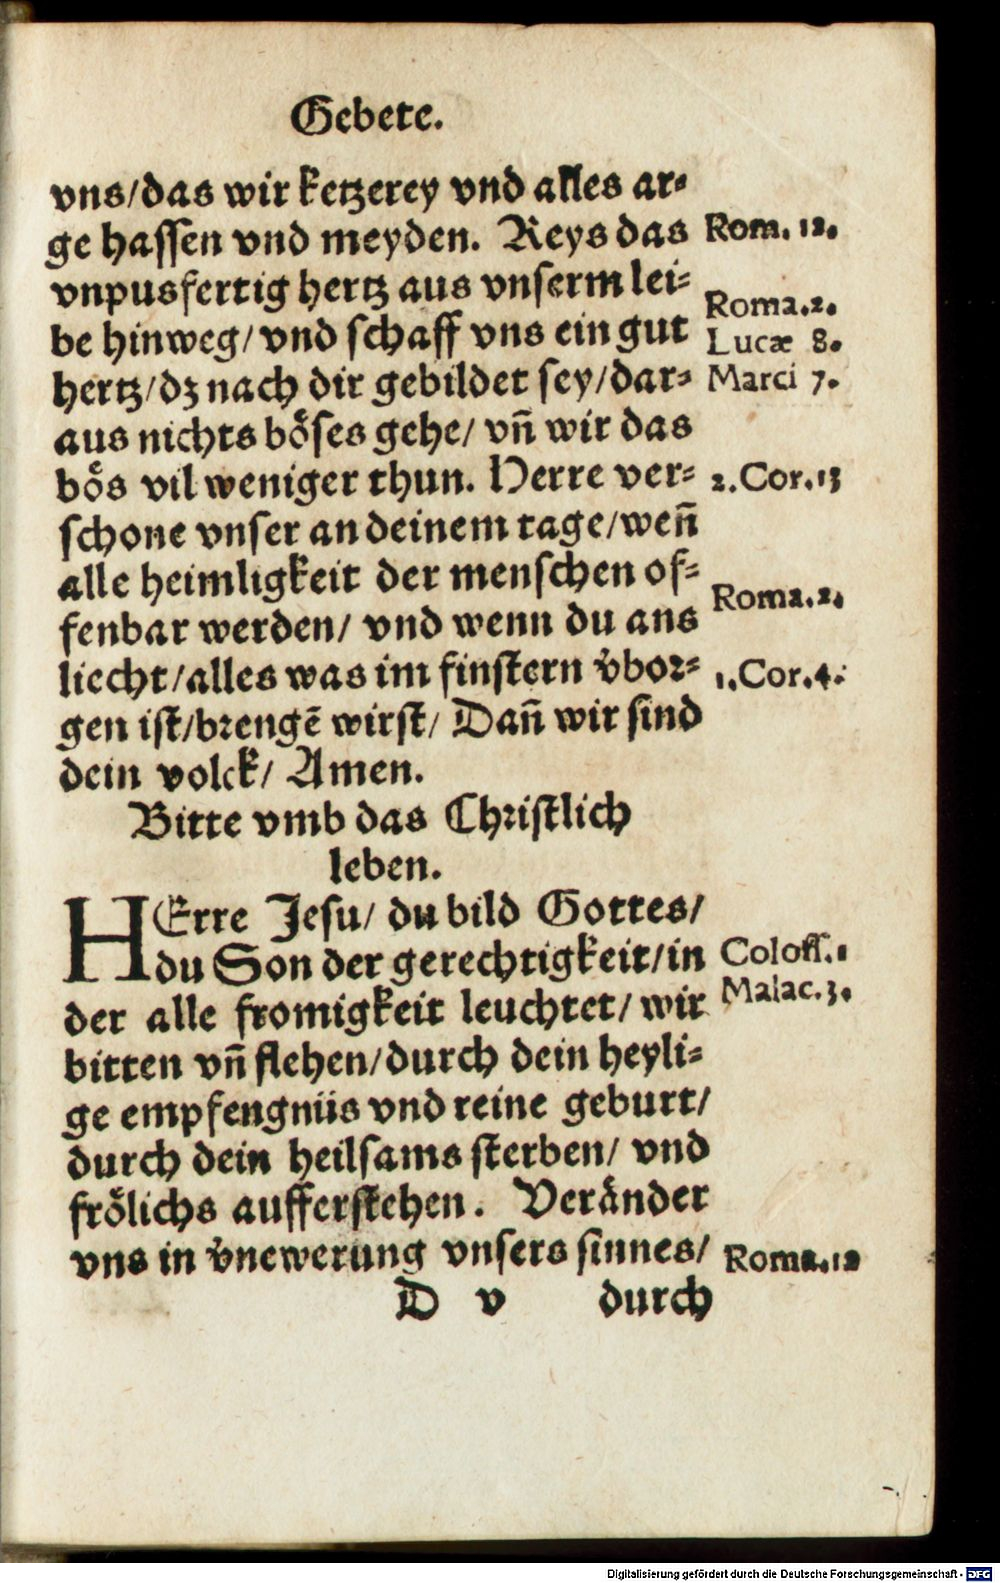 Gebete.
vns/das wir ketzerey vnd alles ar⸗
ge hassen vnd meyden. Reys das
Rom. 12.
vnpusfertig hertz aus vnserm lei⸗
Roma.2.
be hinweg/ vnd schaff vns ein gut
Lucæ 8.
hertz/dz nach dir gebildet sey/dar⸗
Marci 7.
aus nichts böses gehe/ vn̄ wir das
bös vil weniger thun. Herre ver⸗
2.Cor.13
schone vnser an deinem tage/wen̄
alle heimligkeit der menschen of⸗
Roma.2.
fenbar werden/ vnd wenn du ans
liecht/alles was im finstern v̊bor⸗
1.Cor.4.
gen ist/brengē wirst/ Dan̄ wir sind
dein volck/ Amen.
Bitte vmb das Christlich
leben.
HErre Jesu/ du bild Gottes/
du Son der gerechtigkeit/in
Coloss.1
der alle fromigkeit leuchtet/ wir
Malac.3.
bitten vn̄ flehen/durch dein heyli⸗
ge empfengniis vnd reine geburt/
durch dein heilsams sterben/ vnd
frölichs aufferstehen. Veränder
vns in v̊newerung vnsers sinnes/
Roma.12
D v durch
Digitalisierung gefördert durch die Deutsche Forschungsgemeinschaft - DFG